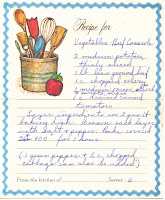 Recipe for
Vegetable-Beef Casserole
2 medium potatoes,
thinly sliced
1 lb. lean ground beef
1 c. chopped celery
1 medium onion, sliced
tomatoes
Layer ingredients in 2 quart
baking dish. Season each layer
with salt & pepper. Bake covered
at 350° for 1 hour.
(1 green pepper & 2 c. chopped
cabbage can also be added)
From the kitchen of
Serves 6